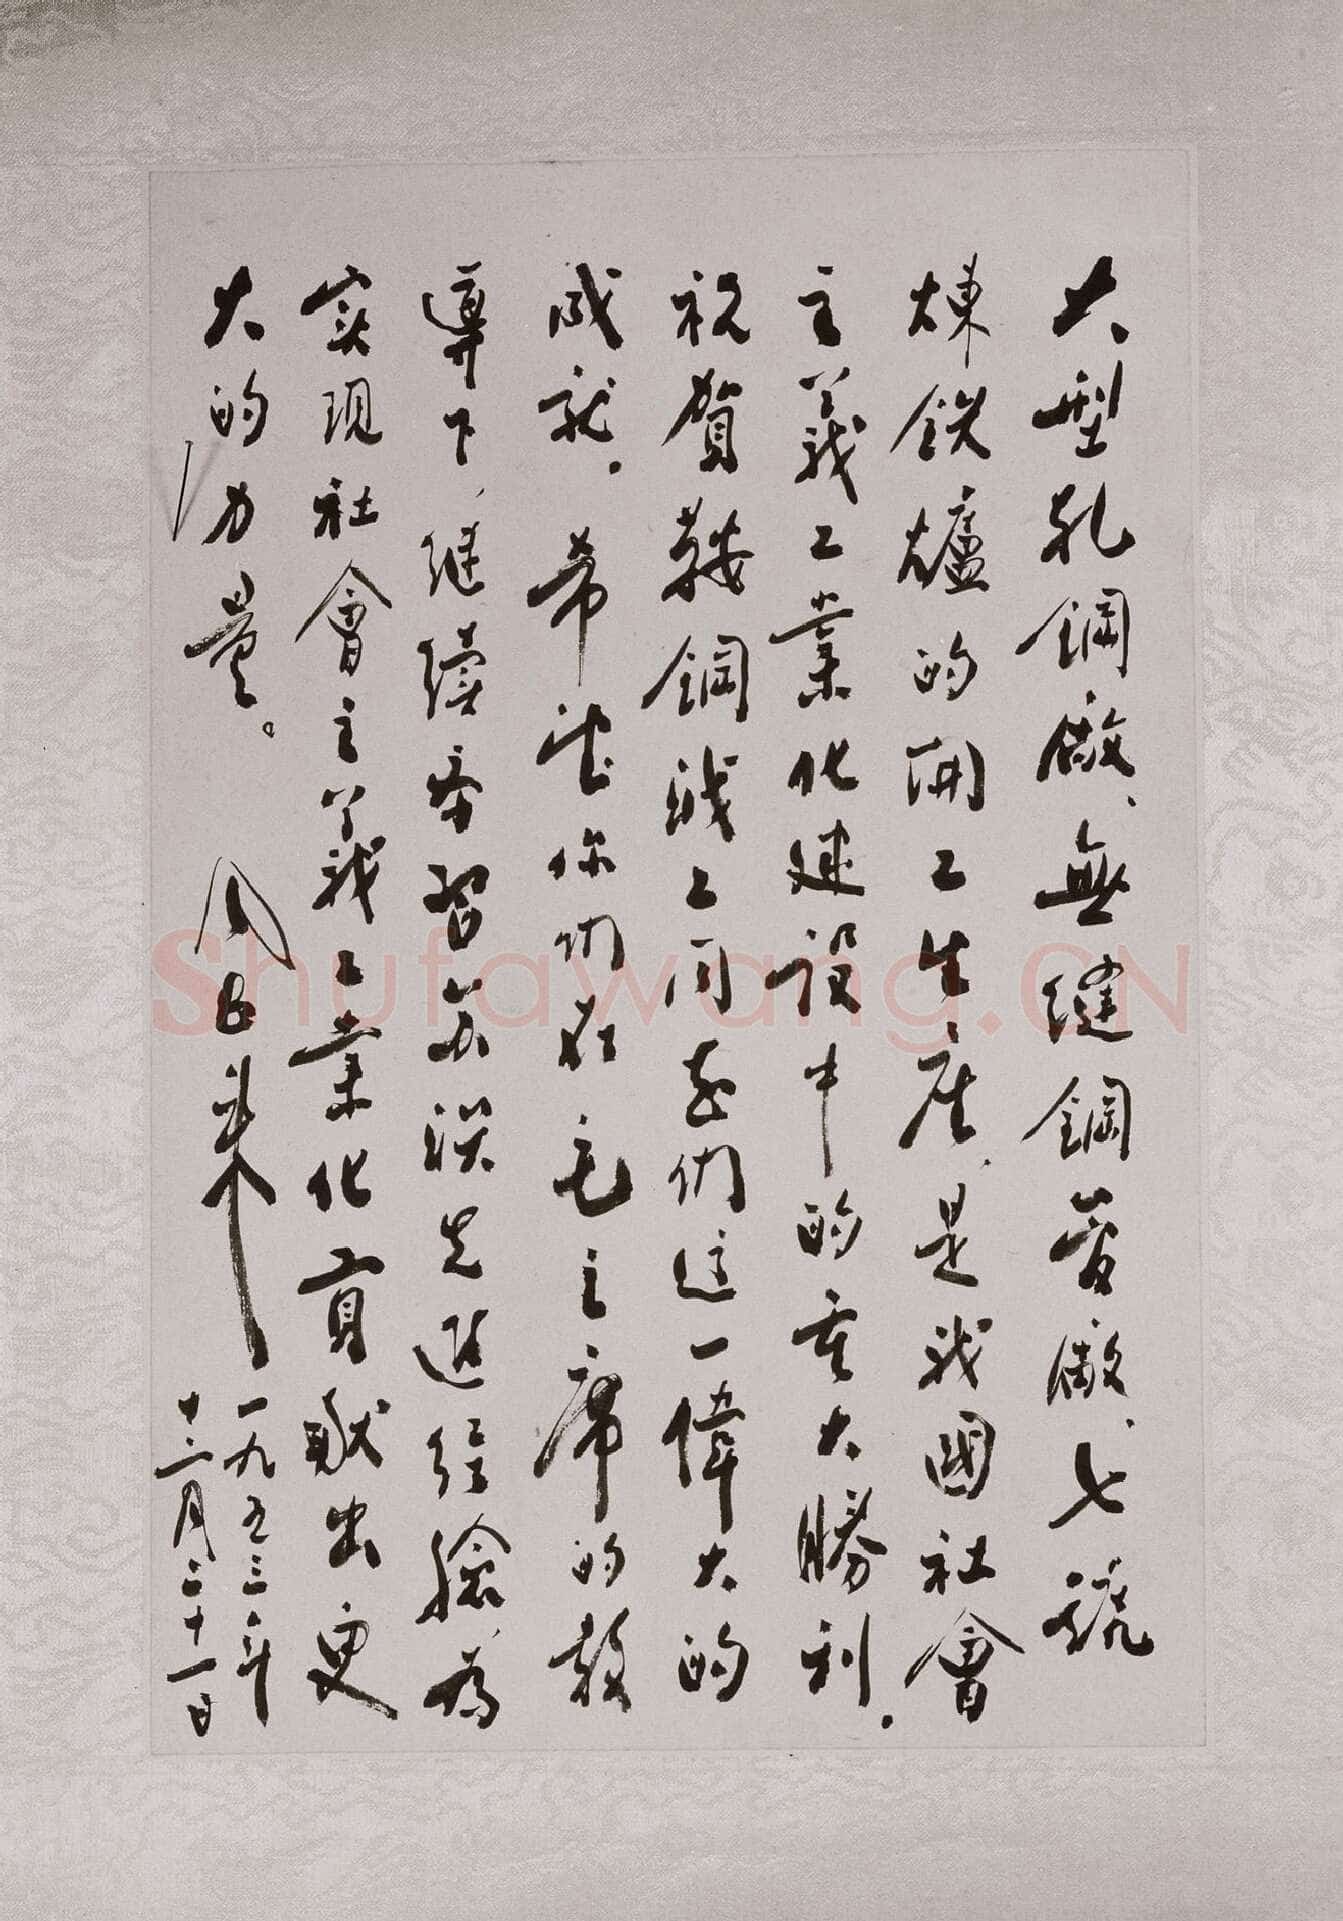 大型軋鋼廠、無縫鋼管廠、七號
煉鉄爐的開工生產、是我國社會
主義工業化建設中的重大勝利.
祝賀鞍鋼職工同志們這一偉大的
成就. 希望你們在毛主席的教
導下、继續學習苏联先進经驗、为
实現社會主義工業化貢献出更
大的力量。
周恩来
一九五三年
十二月二十一日
Shufawang.CN